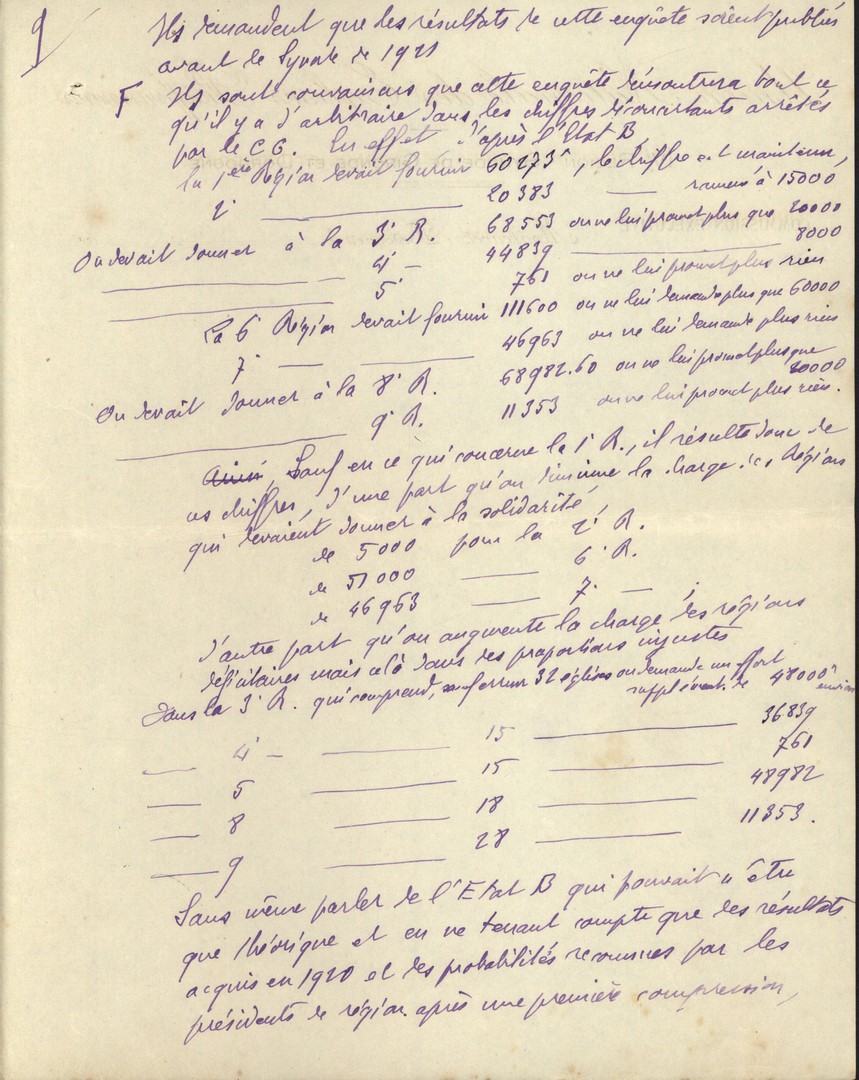 9
Ils demandent que les résultats de cette enquête soient publiés
avant le Synode de 1921
F Ils sont convaincus que cette enquête démontrera tout ce
qu'il y a d'arbitraire dans les chiffres déconcertants arrêtés
par le C G. En effet d'après l'Etat B
la 1ère Région devait fournir 60273 f, le chiffre est maintenu,
2e ——— 20383 — ramené à 15000
On devait donner à la 3e R. 68553 on ne lui promet plus que 20000
——— 4e — 44839 ——— 8000
——— 5e 761 on ne lui promet plus rien
La 6e Région devait fournir 111600 on ne lui demande plus que 60000
7e — ——— 46963 on ne lui demande plus rien
On devait donner à la 8e R. 68982.60 on ne lui promet plus que 20000
——— 9e R. 11353 on ne lui promet plus rien.
Ainsi, Sauf en ce qui concerne la 1e R., il résulte donc de
ces chiffres, d'une part qu'on diminue la charge des Régions
qui devaient donner à la solidarité,
de 5000 pour la 2e R.
de 51000 — 6e R.
de 46963 — 7e —
d'autre part qu'on augmente la charge des régions
déficitaires mais cela dans des proportions injustes
Dans la 3e R. qui comprend, 32 églises on demande un effort
supplément. de 48000 f environ
— 4e — ——— 15 ——— 36839
— 5 ——— 15 ——— 761
— 8 ——— 18 ——— 48982
— 9 ——— 28 ——— 11353.
Sans même parler de l'Etat B qui pouvait n'être
que théorique et en ne tenant compte que des résultats
acquis en 1920 et des probabilités reconnues par les
présidents de région après une première compression,